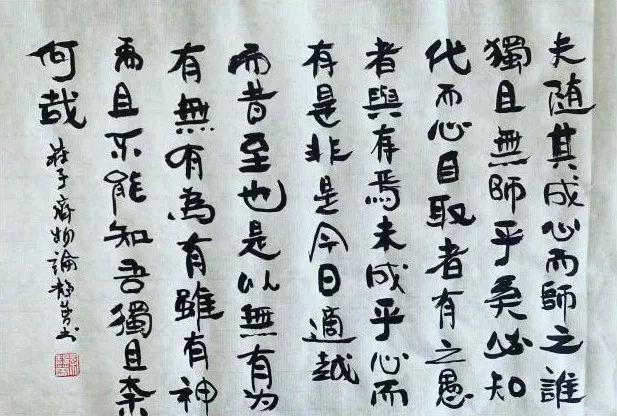 夫随其成心而師之誰
獨且無師乎奚必知
代而心自取者有之愚
者與有焉未成乎心而
有是非是今日適越
而昔至也是以無有为
有無有為有雖有神
禹且不能知吾獨且奈
何哉
莊子齊物論